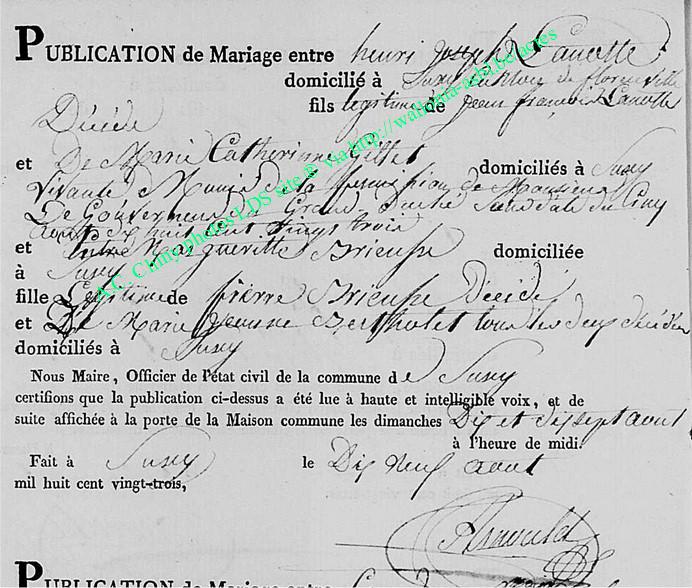 PUBLICATION de Mariage entre henri joseph Lanotte
domicilié à Suxy canton de florenville
fils legitime de jean françois Lanotte
Décédé
et De Marie Catherinne Gillet domiciliés à Suxy
Vivante, Munie de la permission de Monsieur
Le Gouverneur du Grand Duché Sous date du Cinq
août 1 huit cent vingt trois
et Margueritte Brieusse domiciliée
à Suxy
fille Legitime de pierre Brieusse Décédé
et De Marie jeanne Bertholet tous les deux décédés
domiciliés à Suxy
Nous Maire, Officier de l'état civil de la commune de Suxy
certifions que la publication ci-dessus a été lue à haute et intelligible voix, et de
suite affichée à la porte de la Maison commune les dimanches Dix et dixsept aout
à l'heure de midi.
Fait à Suxy le Dix Neuf aout
mil huit cent vingt-trois,
PUBLICATION de Mariage entre
A.C. Chiny photos LDS site ® via http://wallonia-asbl.be/actes